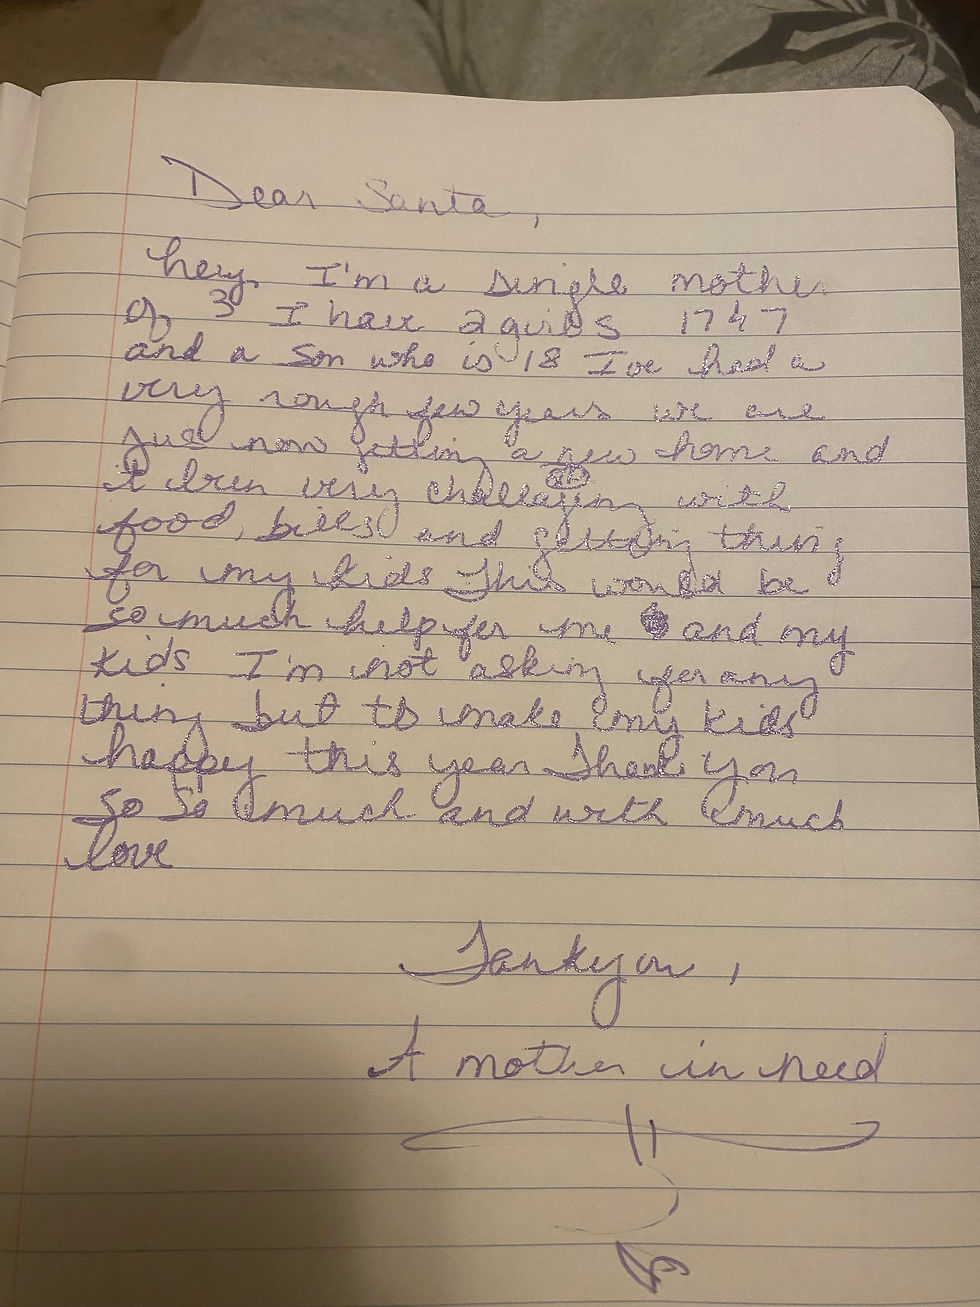 Dear Santa,
hey, I'm a single mother
of 3 I have 2 girls 17 & 7
and a son who is 18 I've had a
very rough few years we are
just now getting a new home and
it been very challaging with
food, bills and getting thing
for my kids This would be
so much help fer me and my
kids I'm not asking fer any
thing but to make my kids
happy this year Thank you
so so much and with much
love
Tankyou,
A mother in need